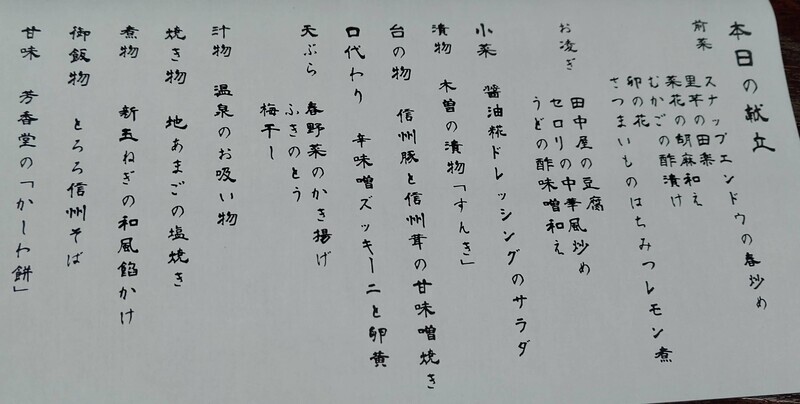 本日の献立
前菜
スナップエンドウの春炒め
里芋の田楽
菜花の胡麻和え
むかごの酢漬け
卯の花
さつまいものはちみつレモン煮
お凌ぎ
田中屋の豆腐
セロリの中華風炒め
うどの酢味噌和え
小菜 醤油糀ドレッシングのサラダ
漬物 木曽の漬物「すんき」
台の物 信州豚と信州茸の甘味噌焼き
口代わり 辛味噌ズッキーニと卵黄
天ぷら 春野菜のかき揚げ
ふきのとう
梅干し
汁物 温泉のお吸い物
焼き物 地あまごの塩焼き
煮物 新玉ねぎの和風餡かけ
御飯物 とろろ信州そば
甘味 芳香堂の「かしわ餅」